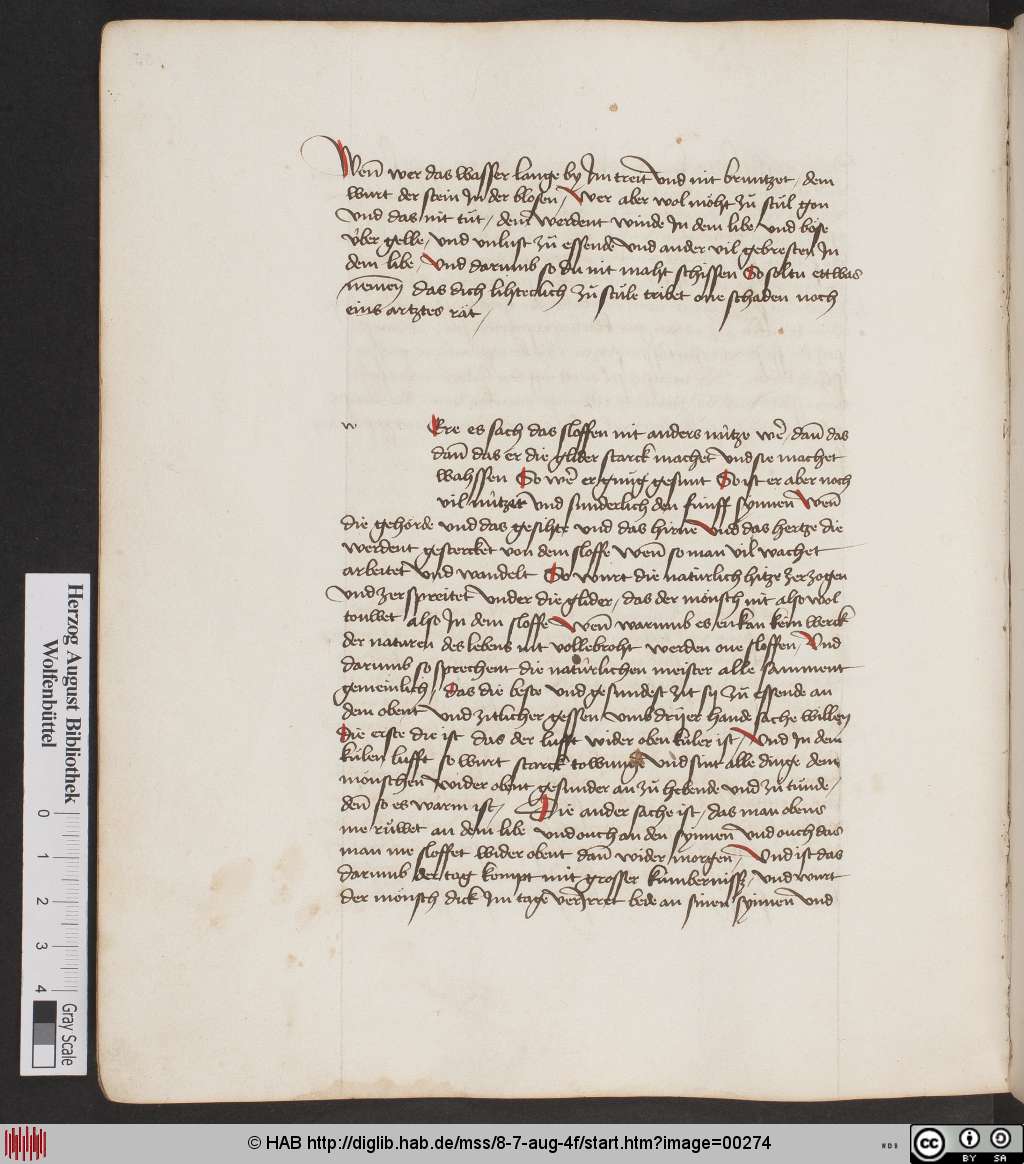 Wen̄ wer das wasser lange by Im treit vnd nit bruntzet / dem
wurt der stein In der blosen / Wer aber wol möht zů stůl gon
vnd das nit tůt / dem werdent winde In dem libe / vnd böse
v̊ber gelle / vnd vnlust zů essende vnd ander vil gebresten In
dem libe / Vnd darumb so du nit maht schissen So soltu ettwas
nemen das dich lihteclich zů stůle tribet one schaden noch
eins artztes rat /
w
Ere es sach das sloffen nit anders nütze we᷑ / dan̄ das
dan̄ das er die glider starck machet vnd sie machet
wahssen So we᷑ er gnůg gesunt So ist er aber noch
vil nützer vnd sunderlich den fünff synnen Wen̄
die gehörde vnd das gesihte vnd das hirne Vnd das hertze die
werdent gestercket von dem sloffe wen̄ so man vil wachet
arbeitet vnd wandelt So wurt die natürlich hitze zerzogen
vnd zerspreitet vnder die glider / das der mönsch nit also wol
touwet also In dem sloffe Wen̄ warumb es enkan kein werck
der naturen des lebens nit vollebroht werden one sloffen / Vnd
darumb so sprechent die natürlichen meister alle samment
gemeinlich / das die beste vnd gesundest zit sy zů essende an
dem obent vnd zitlicher gessen vmb drÿer hande sache willen
die erste die ist das der lufft wider oben küler ist / Vnd In dem
külen lufft so wurt starck towunge vnd sint alle dinge dem
mönschen wider obent gesunder an zů hebende vnd zů tůnde /
den̄ so es warm ist / Die ander sache ist / das man obens
me růwet an dem libe vnd ouch an den synnen vnd ouch das
man me sloffet wider obent dan̄ wider morgen / Vnd ist das
darumb der tag kompt mit grosser kümbernissz / vnd wurt
der mönsch dick Im tage verIrret bede an sinen synnen vnd
Herzog August Bibliothek
Wolfenbüttel
0 1 2 3 4
Gray Scale
© HAB http://diglib.hab.de/mss/8-7-aug-4f/start.htm?image=00274
WDB
CC BY SA